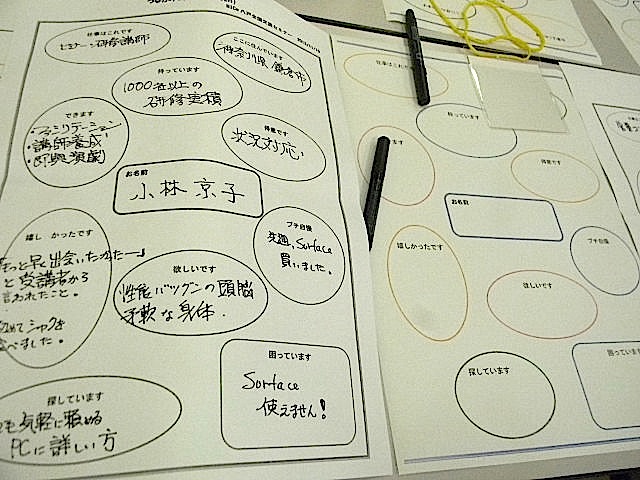 仕事はこれです
セミナー・研修講師
ここに住んでいます
神奈川県 鎌倉市
持っています
1000名以上の
研修実績
できます
・ファシリテーション
・講師養成
・即興演劇
得意です
状況対応
お名前
小林 京子
嬉しかったです
もっと早く出会いたかったー」
と受講者から
言われたこと。
プチ自慢
先週、Surface
買いました。
欲しいです
性能バツグンの頭脳
柔軟な身体.
困っています
Surface
使えません!
探しています
気軽に頼める
PCに詳しい方
仕事はこれです
持っています
得意です
お名前
プチ自慢
嬉しかったです
欲しいです
探しています
困っています